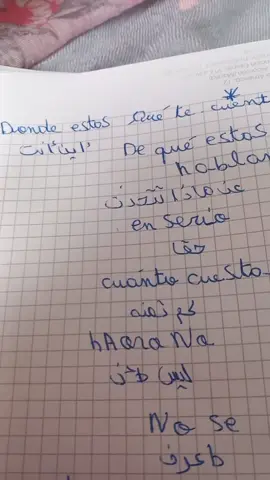 Donde estas Qué te cuent
اين انت De qué estas
hablan
عن ماذا تتحدث
en serio
حقا
cuánto cuesto
كم ثمنه
hAora No
ليس الان
No se
لا اعرف